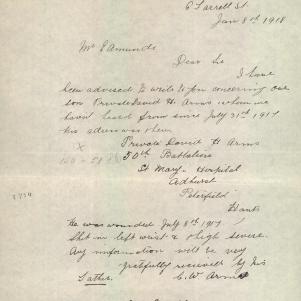 6 Farrell St.
Jan 8th 1918
Mr Edmunds
Dear Sir
I have
been advised to write to you concerning our
son Private David H. Arms whom we
have heard from since July 31st 1917
his address then
x
Private David H Arms
50th Battalion
St Marys Hospital
Adhurst
Petersfield
Hants
8734
He was wounded July 8th 1917
Shot in left wrist & thigh severe.
Any information will be very
gratefully received by his
Father. C. W. Arms